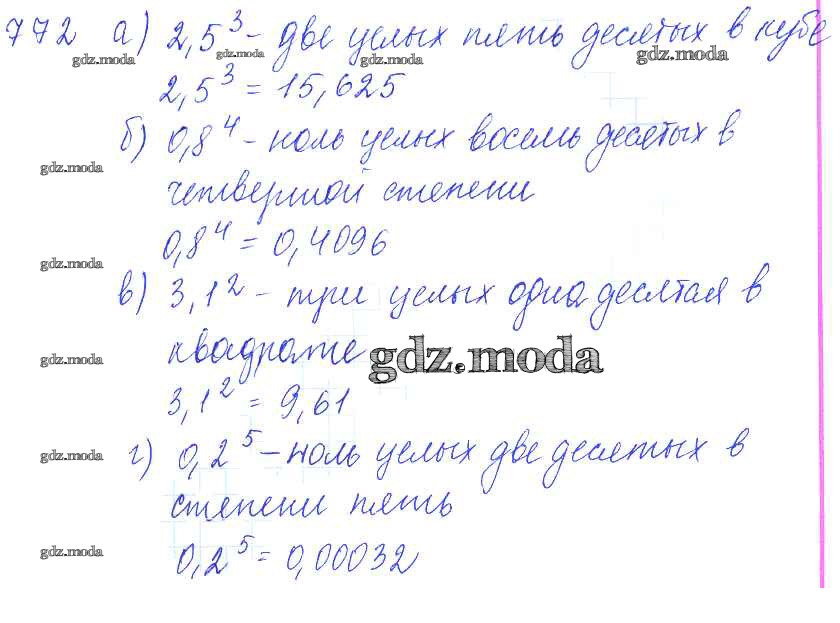 772 а) 2,5³ - две целых пять десятых в кубе
gdz.moda gdz.moda gdz.moda gdz.moda
2,5³ = 15,625
б) 0,8⁴ - ноль целых восемь десятых в
gdz.moda
четвертой степени
0,8⁴ = 0,4096
gdz.moda
в) 3,1² - три целых одна десятая в
квадрате gdz.moda
gdz.moda
3,1² = 9,61
г) 0,2⁵ - ноль целых две десятых в
gdz.moda
степени пять
gdz.moda
0,2⁵ = 0,00032